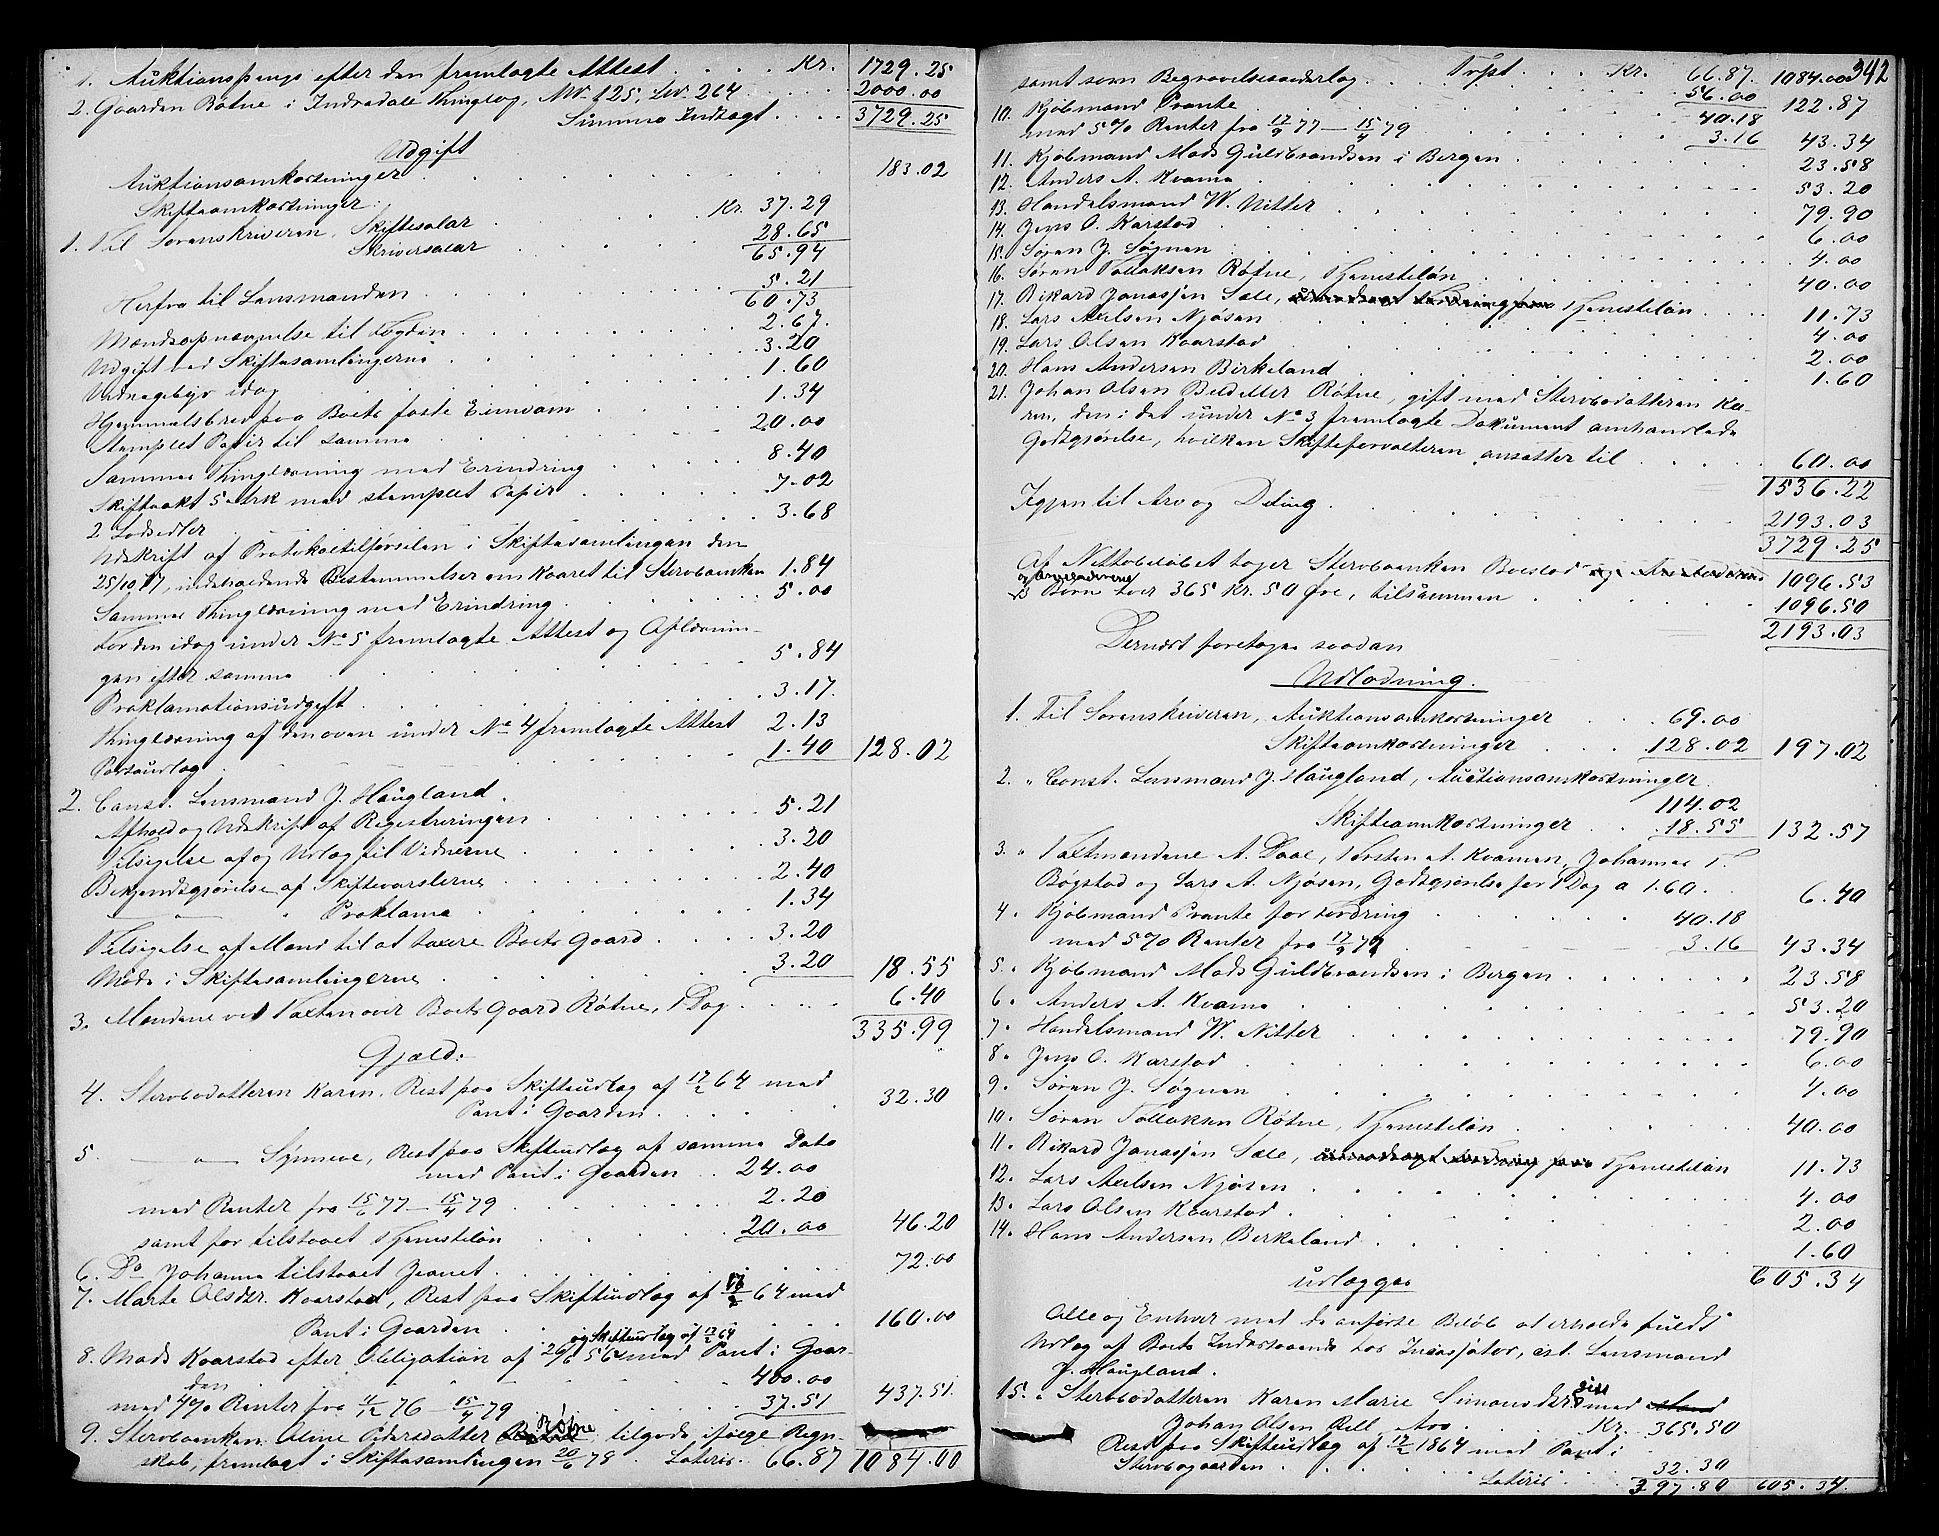 1. Auktionspenge efter den fremlagte Attest . . . . Kr. 1729.25
2. Gaarden Røtne i Indredale Thinglag, Mn 125, Ln 264 . . . . 2000.00
Summa Indtægt . . . . 3729.25
Udgift
Auktionsomkostninger . . . . 183.02
Skifteomkostninger.
1. Til Sorenskriveren, Skiftesalær . . . Kr. 37.29
Skriversalær . . . . 28.65
65.94
Herfra til Lensmanden . . . . 5.21
60.73
Mandsopnævnelse til Fogden . . . . 2.67.
Udgift ved Skiftesamlingerne . . . . 3.20
idag . . . . 1.60
Hjemmelsbrev paa Boets faste Eiendom . . . . 1.34
Stemplet Papir til samme . . . . 20.00
Sammes Thinglæsning med Erindring . . . . 8.40
Skifteakt 5 Ark med stemplet Papir . . . . 7.02
2 Lodsedler . . . . 3.68
Udskrift af Protokoltilførselen i Skiftesamlingen den
25/10 77, indeholdende Bestemmelser om Kaaret til Sterboenken 1.84
Sammes Thinglæsning med Erindring . . . . 5.00
For den idag under No 5 fremlagte Attest og Aflæsnin-
gen efter samme . . . . 5.84
Proklamationsudgift . . . . 3.17.
Thinglæsning af den oven under No 4 fremlagte Attest 2.13
Postudlæg . . . . 1.40 128.02
2. Const. Lensmand J. Haugland.
Afhold og Udskrift af Registreringen . . . . 5.21
Tilsigelse af og Udlæg til Vidnerne . . . . 3.20
Bekjendtgjørelse af Skiftevarslerne . . . . 2.40
— " Proklama . . . . 1.34
Tilsigelse af Mænd til at taxere Boets Gaard . . . . 3.20
Møde i Skiftesamlingerne . . . . 3.20 18.55
3. Mændene ved Taxten over Boets Gaard Røtne, 1 Dag . . . . 6.40
335.99
Gjæld:
4. Sterbodatteren Karen, Rest paa Skifteudlæg af 17/2 64 med
Pant i Gaarden . . . . 32.30
5. — " — Synneve, Rest paa Skifteudlæg af samme Dato
med Pant i Gaarden . . 24.00
med Renter fra 15/6 77 – 15/4 79 . . . . 2.20
samt for tilstaaet Tjenesteløn . . . . 20.00 46.20
6. Do Johanna tilstaaet . . . . 72.00
7. Marte Olsdtr. Kvarstad, Rest paa Skifteudlæg af 17/2 64 med
Pant i Gaarden . . . . 160.00
og Skifteudlæg af 17/2 64
8. Mads Kvarstad efter Obligation af 29/6 56 med Pant i Gaar-
den . . . . 400.00
med 4% Renter fra 4/12 76 – 15/4 79 . . . . 37.51 437.51.
9. Sterboenken Oline Pedersdatter Røtne tilgode ifølge Regn-
skab, fremlagt i Skiftesamlingen 26/6 78 . Lateris . . 66.87 1084.00
342
Trspt. . . . Kr. 66.87. 1084.00
samt som Begravelsesudlæg . . . . 56.00 122.87
10. Kjøbmand Prante . . . . 40.18
med 5% Renter fra 17/9 77 – 15/4 79 . . . . 3.16 43.34
11. Kjøbmand Mads Guldbrandsen i Bergen . . . . 23.58
12. Anders A. Kvamme . . . . 53.20
13. Handelsmand W. Nitter . . . . 79.90
14. Jens O. Karstad . . . . 6.00
15. Søren J. Søgnen . . . . 4.00
16. Søren Tollaksen Røtne, Tjenesteløn . . . . 40.00
17. Rikard Jonassen Sæle, Tjenesteløn . . . . 11.73
18. Lars Nilsen Njøsen . . . . 4.00
19. Lars Olsen Kvarstad . . . . 2.00
20. Hans Andersen Birkeland . . . . 1.60
21. Johan Olsen Beed eller Røtne, gift med Sterbodatteren Ka-
ren, den i det under No 3 fremlagte Dokument omhandlede
Godtgjørelse, hvilken Skifteforvalteren ansætter til . . . . 60.00
1536.22
Igjen til Arv og Deling . . . . 2193.03
3729.25
Af Nettobeløbet tager Sterboenken Boeslod 1096.53
og Børnelodderne
3 Børn hver 365 Kr. 50 Øre, tilsammen . . . . 1096.50
2193.03
Dernæst foretoges saadan
Udlodning.
1. Til Sorenskriveren, Auktionsomkostninger . . . 69.00
Skifteomkostninger . . . 128.02 197.02
2. " Const. Lensmand J. Haugland, Auctionsomkostninger
114.02
Skifteomkostninger . . . 18.55 132.57
3. " Taxtmændene A. Daae, Torsten A. Kvamen, Johannes T.
Bøgstad og Lars A. Njøsen, Godtgjørelse for 1 Dag a 1.60. 6.40
4. " Kjøbmand Prante for Fordring . . . . 40.18
med 5% Renter fra 17/9 77 . . . . 3.16 43.34
5. " Kjøbmand Mads Guldbrandsen i Bergen . . . . 23.58
6. " Anders A. Kvamme . . . . 53.20
7. " Handelsmand W. Nitter . . . . 79.90
8. " Jens O. Karstad . . . . 6.00
9. " Søren J. Søgnen . . . . 4.00
10. " Søren Tollaksen Røtne, Tjenesteløn . . . . 40.00
11. " Rikard Jonassen Sæle, Tjenesteløn 11.73
12. " Lars Nilsen Njøsen . . . . 4.00
13. " Lars Olsen Kvarstad . . . . 2.00
14. " Hans Andersen Birkeland . . . . 1.60
605.34
udlægges
Alle og Enhver med de anførte Beløb at erholde fuldt
Udlæg af Boets Indestaaende hos Incassator, cst. Lensmand
J. Haugland.
15. " Sterbodatteren Karen Marie Simonsdtr. gift med
Johan Olsen Arv . . . Kr. 365.50
Rest paa Skifteudlæg af 17/2 1864 med Pant i
Sterbogaarden . . . . 32.30
Lateris . . . 397.80 605.34.